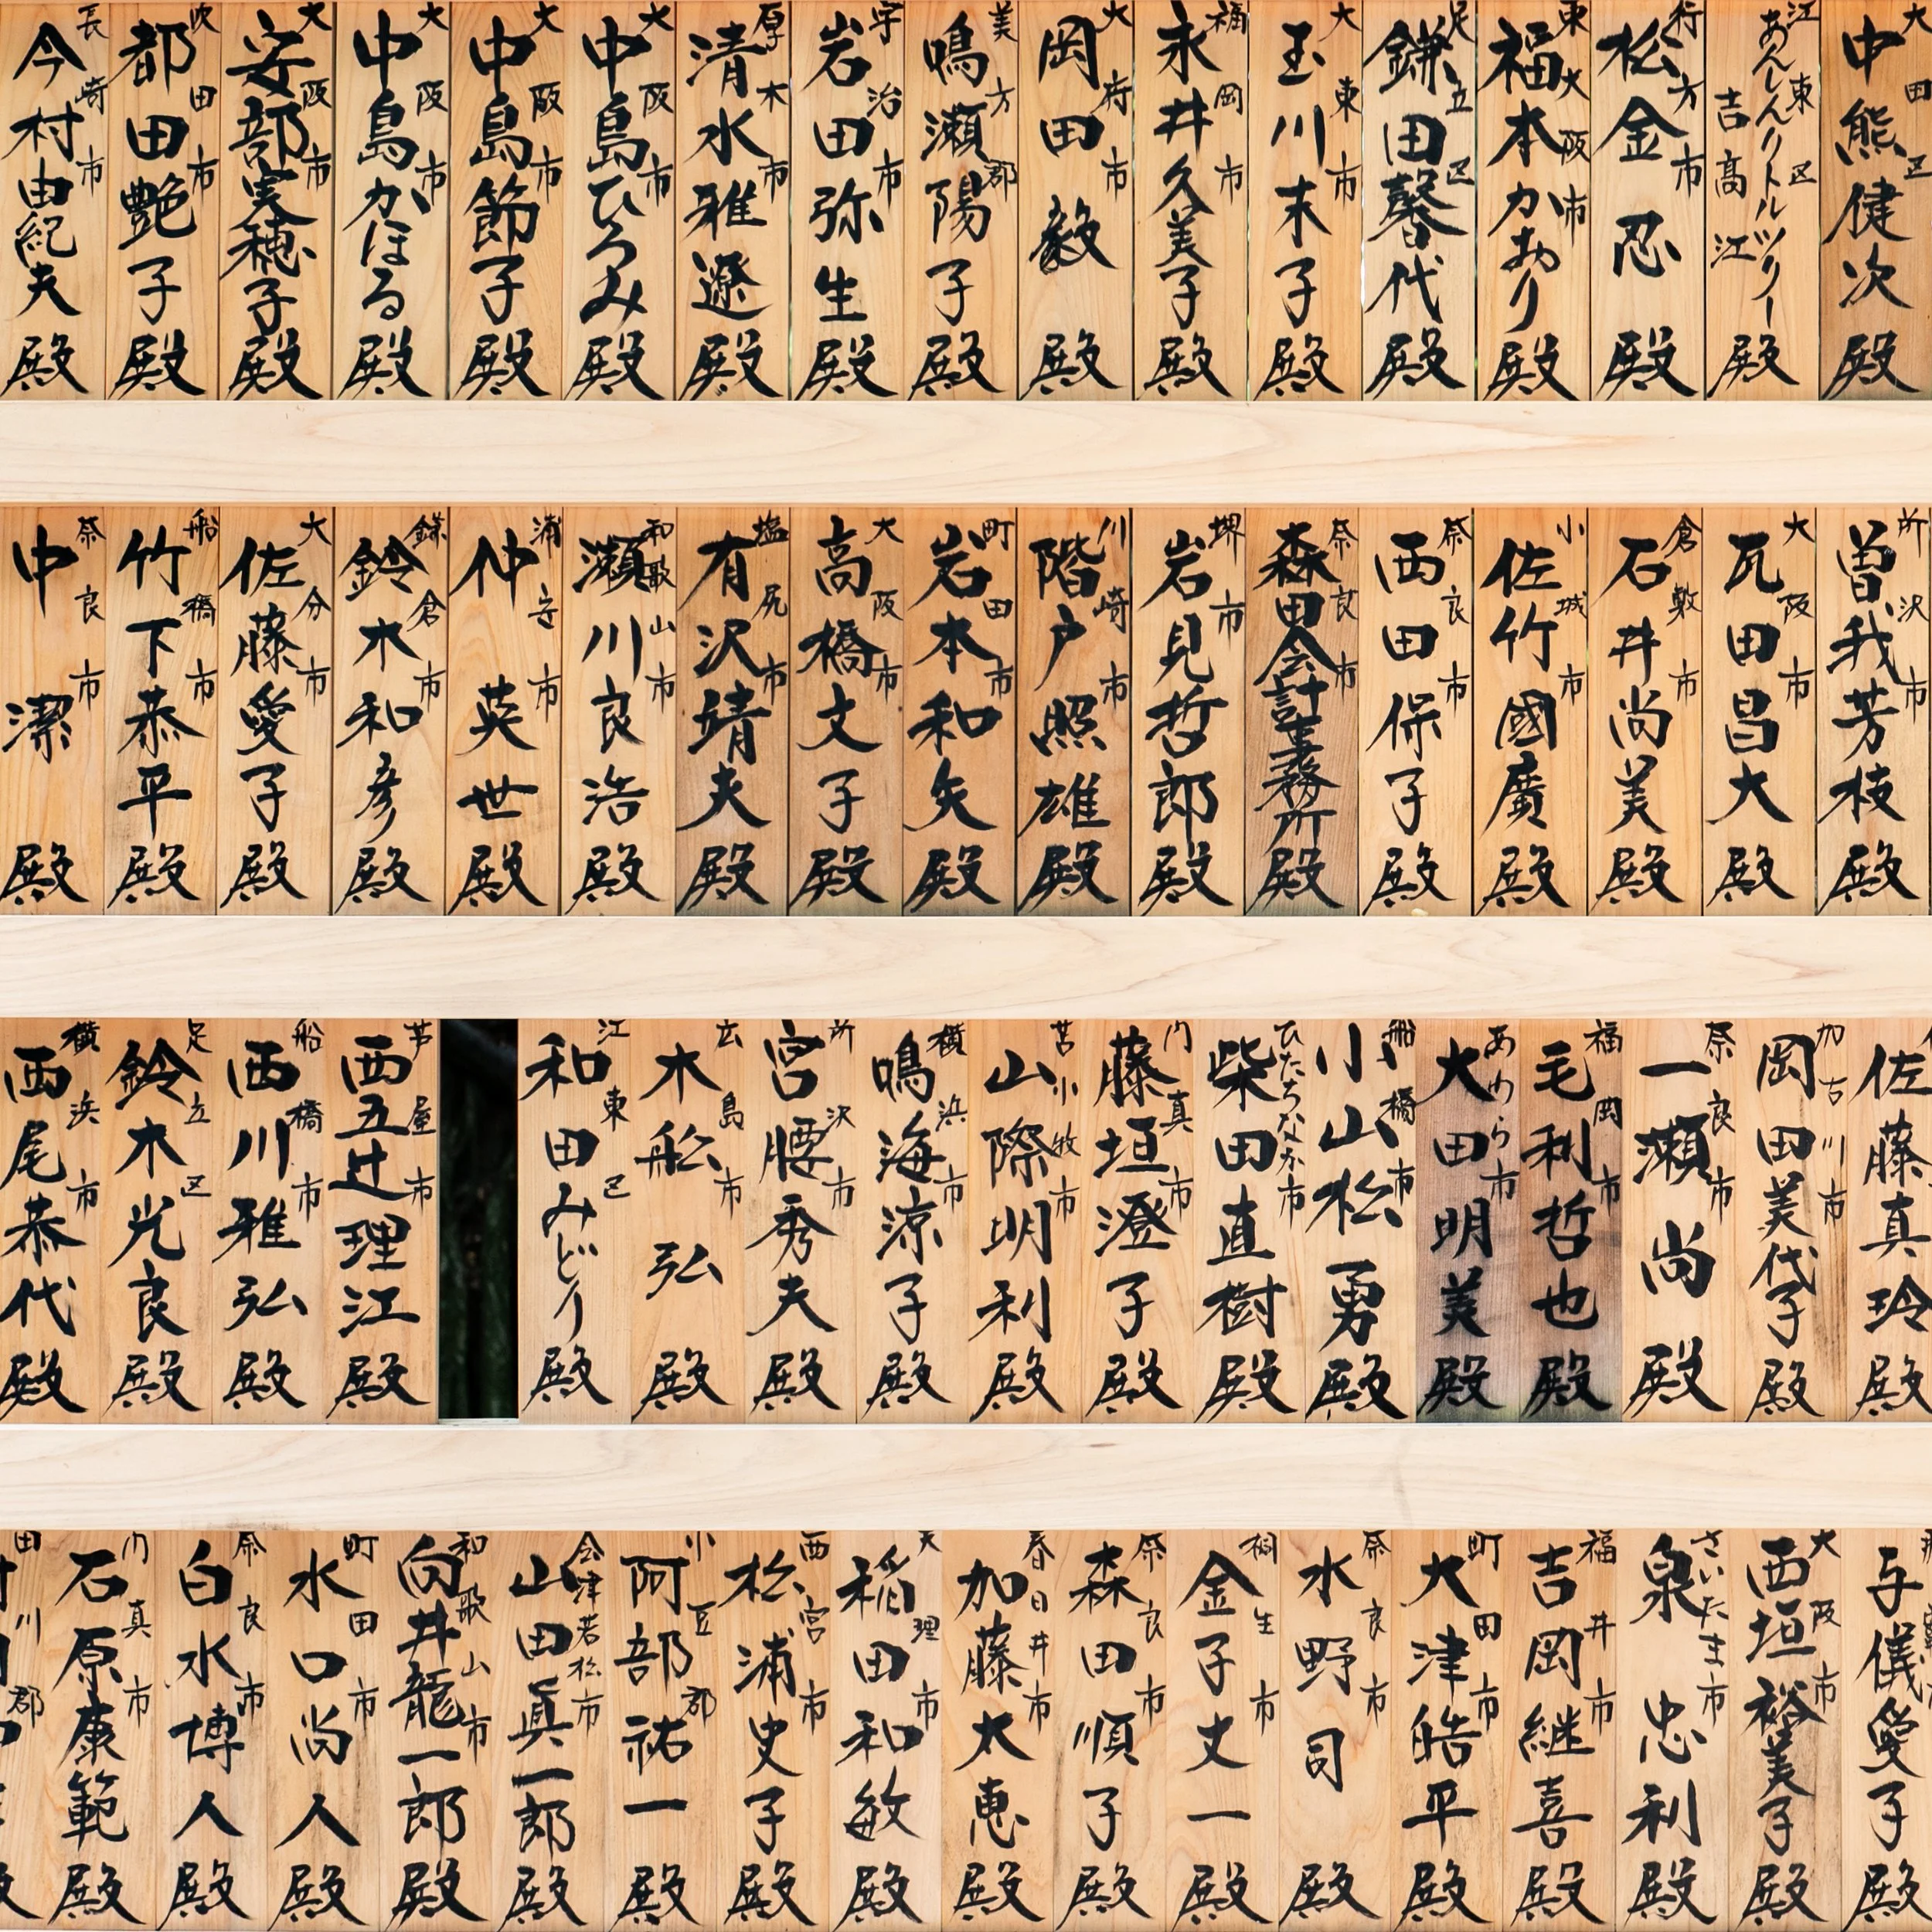 大田区 中熊健次殿
江東区 あんしんリトルツリー 吉高江殿
行方市 松金忍殿
東大阪市 福本かおり殿
足立区 鎌田馨代殿
大東市 玉川末子殿
福岡市 永井久美子殿
大府市 岡田毅殿
美方郡 鳴瀬陽子殿
宇治市 岩田弥生殿
厚木市 清水雅遼殿
大阪市 中島ひろみ殿
大阪市 中島節子殿
大阪市 中島かほる殿
大阪市 安部実穂子殿
吹田市 都田艶子殿
長崎市 今村由紀夫殿
所沢市 曽我芳枝殿
大阪市 瓦田昌大殿
倉敷市 石井尚美殿
小城市 佐竹國廣殿
奈良市 西田保子殿
奈良市 森田会計事務所殿
堺市 岩見哲郎殿
川崎市 階戸照雄殿
町田市 岩本和矢殿
大阪市 高橋文子殿
塩尻市 有沢靖夫殿
和歌山市 瀬川良浩殿
浦安市 仲英世殿
鎌倉市 鈴木和彦殿
大分市 佐藤愛子殿
船橋市 竹下恭平殿
奈良市 中潔殿
佐藤真玲殿
加古川市 岡田美代子殿
奈良市 一瀬尚殿
福岡市 毛利哲也殿
あわら市 大田明美殿
船橋市 小山松勇殿
ひたちなか市 柴田直樹殿
門真市 藤垣澄子殿
苫小牧市 山際明利殿
横浜市 鳴海涼子殿
所沢市 宮腰秀夫殿
広島市 木舩弘殿
江東区 和田みどり殿
芦屋市 西五辻理江殿
船橋市 西川雅弘殿
足立区 鈴木光良殿
横浜市 西尾恭代殿
与儀愛子殿
大阪市 西垣裕美子殿
さいたま市 泉忠利殿
福井市 吉岡継喜殿
町田市 大津皓平殿
奈良市 水野司殿
桐生市 金子丈一殿
奈良市 森田順子殿
春日井市 加藤太恵殿
天理市 稲田和敏殿
西宮市 松浦史子殿
小豆郡 阿部祐一殿
会津若松市 山田眞一郎殿
和歌山市 向井龍一郎殿
町田市 水口尚人殿
奈良市 白水博人殿
門真市 石原康範殿
田川郡